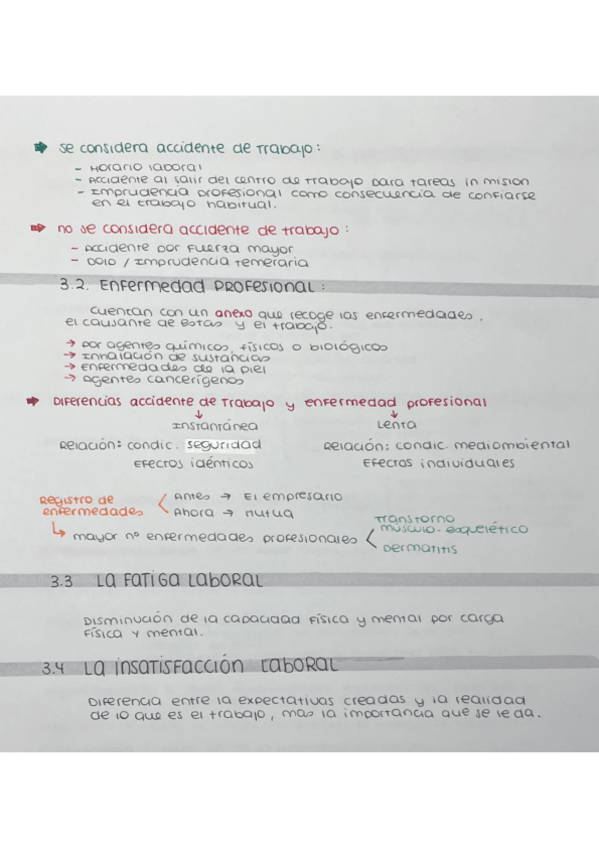 → Se considera accidente de trabajo:
- Horario laboral
- Accidente al salir del centro de trabajo para tareas in mision
- Imprudencia profesional como consecuencia de confiarse
en el trabajo habitual.
→ no se considera accidente de trabajo:
- Accidente por fuerza mayor
- Dolo / Imprudencia temeraria
3.2. Enfermedad profesional:
Cuentan con un anexo que recoge las enfermedades,
el causante de estas y el trabajo.
→ por agentes químicos, físicos o biológicos
→ Inhalación de sustancias
→ Enfermedades de la piel
→ Agentes cancerígenos
→ Diferencias accidente de trabajo y enfermedad profesional
↓ ↓
Instantánea Lenta
Relación: condic. seguridad Relación: condic. mediombiental
Efectos idénticos Efectos individuales
Registro de Antes → El empresario
enfermedades Ahora → mutua
↳ mayor nº enfermedades profesionales Transtorno
músculo-esquelético
Dermatitis
3.3 La fatiga laboral
Disminución de la capacidad física y mental por carga
física y mental.
3.4 La insatisfacción laboral
Diferencia entre la expectativas creadas y la realidad
de lo que es el trabajo, mas la importancia que se le da.